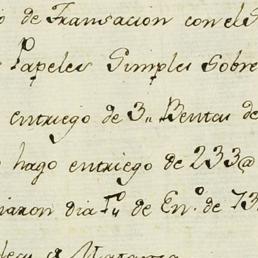 o de Transacion con el S
Papeles Simples Sobre
entriego de 3,, Bentas de
hago entriego de 233@
iaron dia 1º,, de Enº. de 73